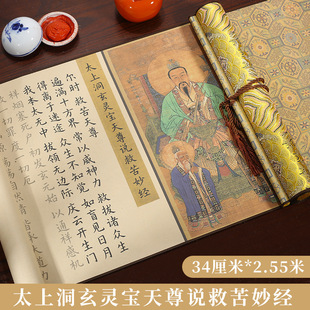 太上洞玄灵宝天尊说救苦妙经
尔时救苦天尊
遍满十方界 常以威神力 救拔诸众生
得离于迷途 众生不知觉 如盲见日月
我本太无中 拔领无边际 庆云开生门
祥烟塞死户 初发玄元始 以通祥感机
34厘米*2.55米
太上洞玄灵宝天尊说救苦妙经